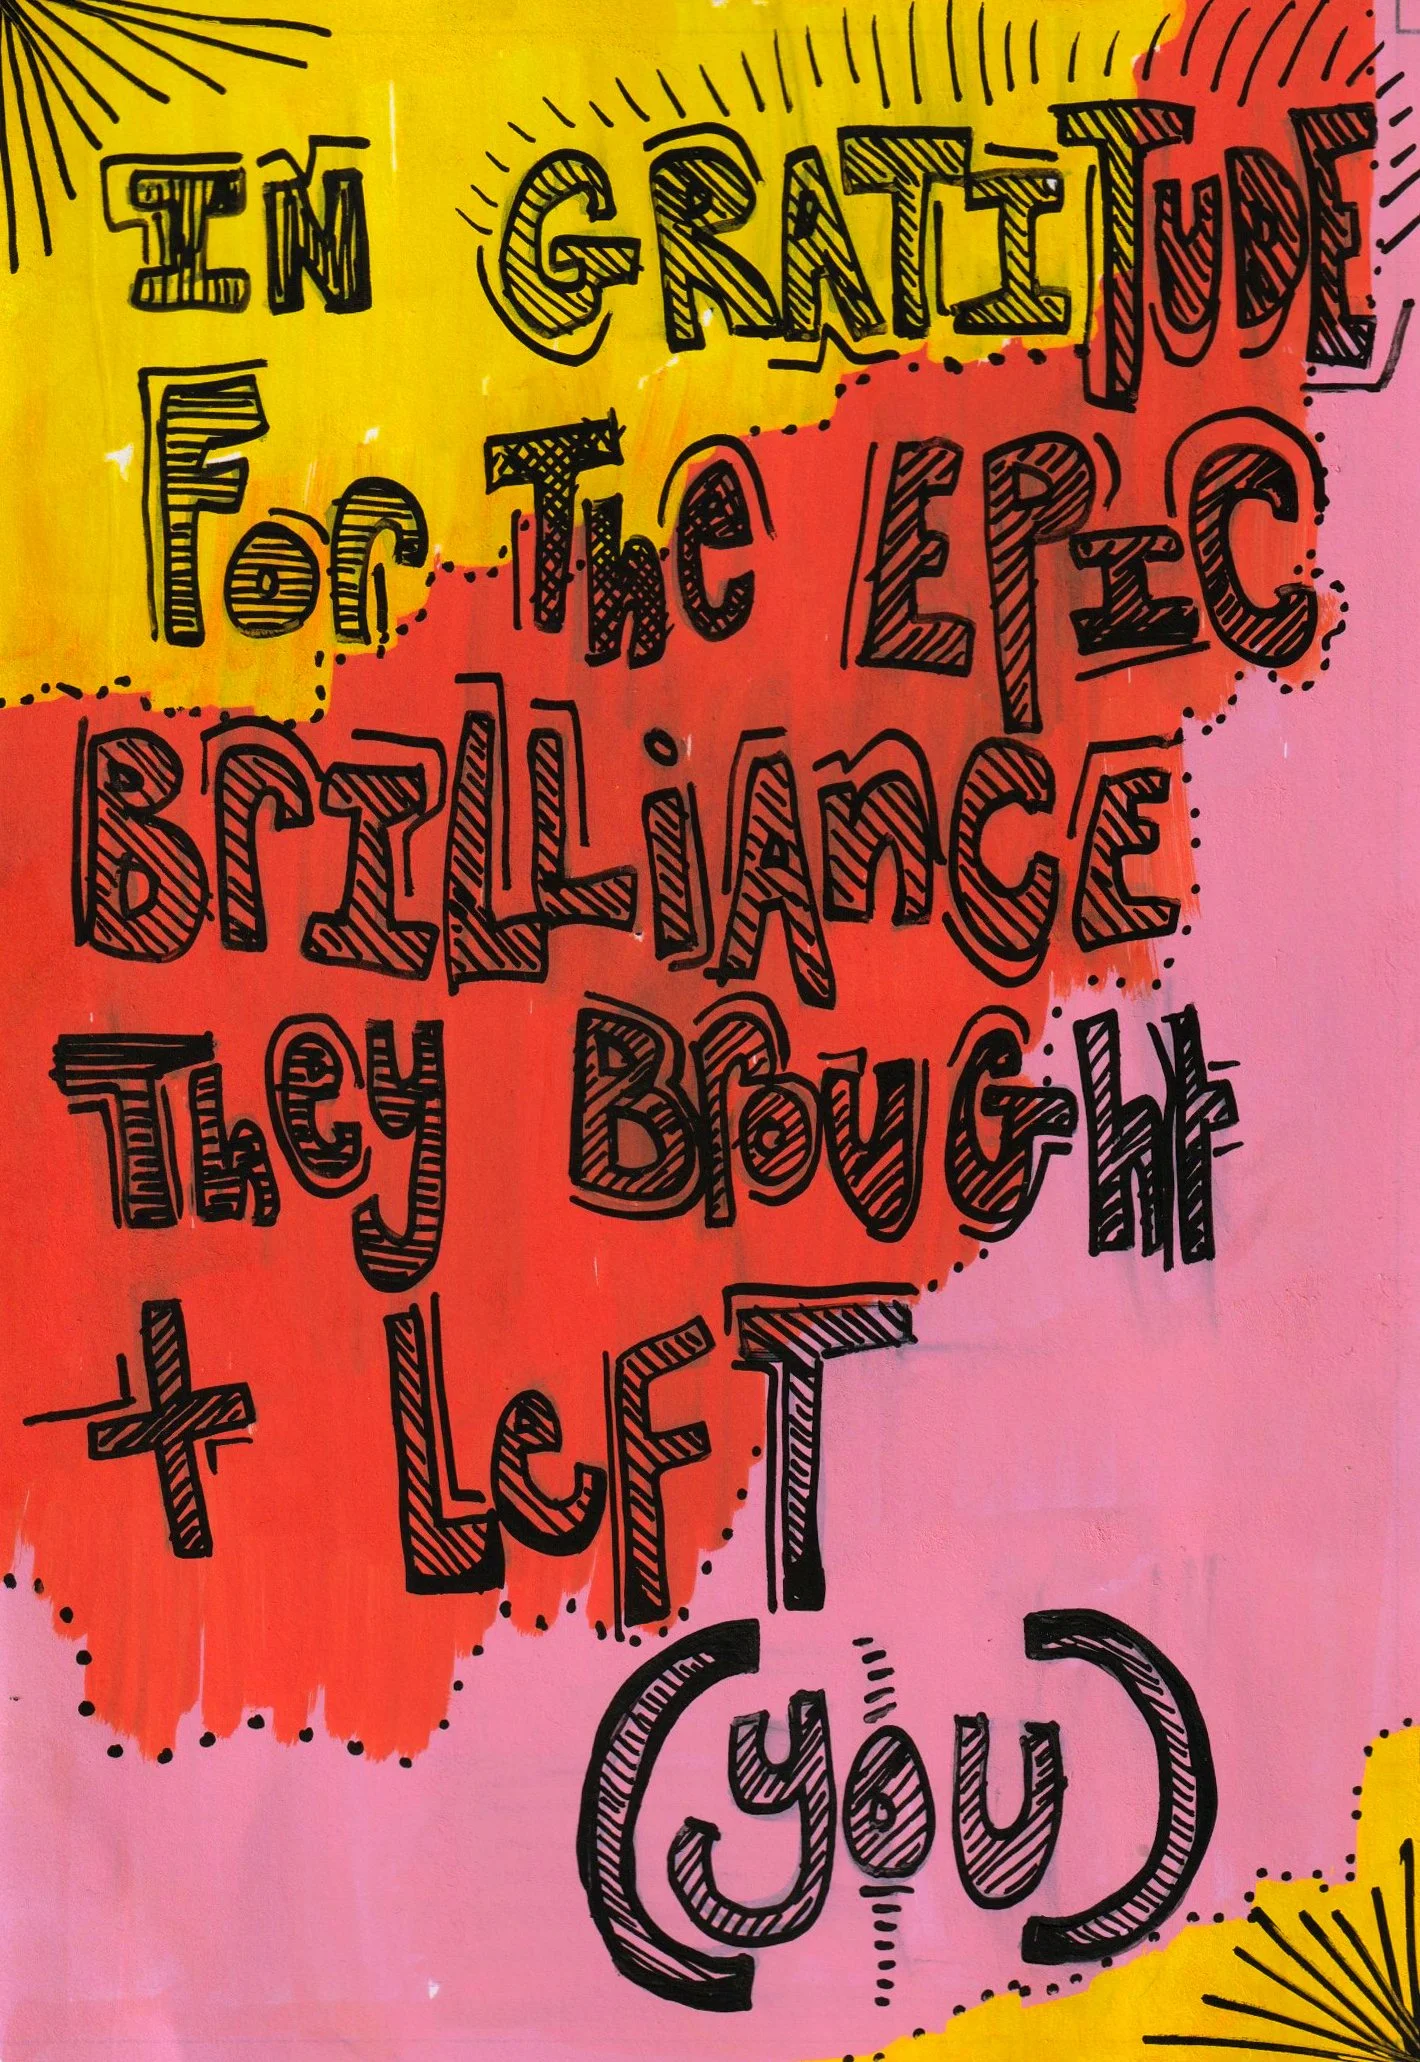 IN GRATITUDE
For The EPIC
BrILLiAnCE
They BrouGht
+ LeFT
(you)